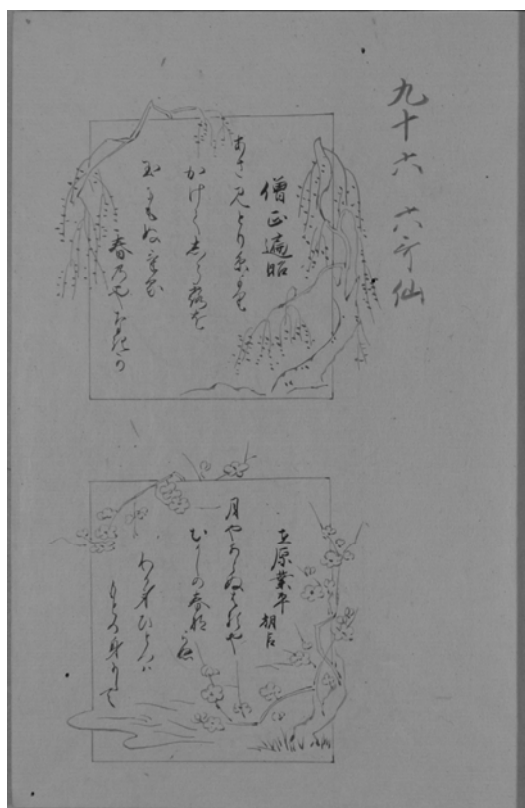 九十六 六哥仙
僧正遍昭
あさみとり糸より
かけてしら露を
玉にもぬける
春乃やなきか
在原業平
朝臣
月やあらぬ春や
むかしの春ならぬ
わか身ひとつハ
もとの身にして